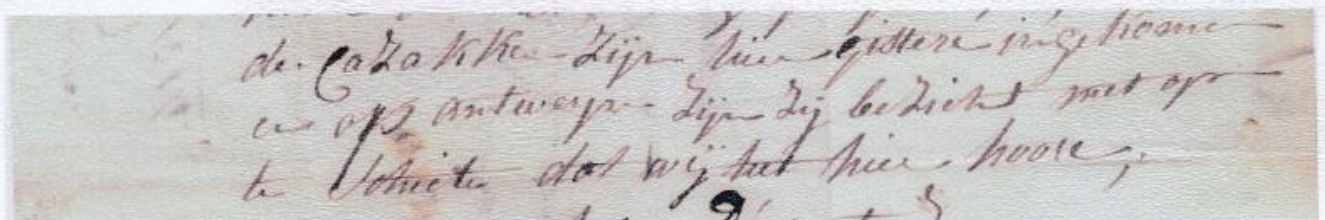 de Cazakken zijn hier gistere ingekome
en op antwerpe zijn zij bezicht met op
te schiete dat wij het hier hoore,